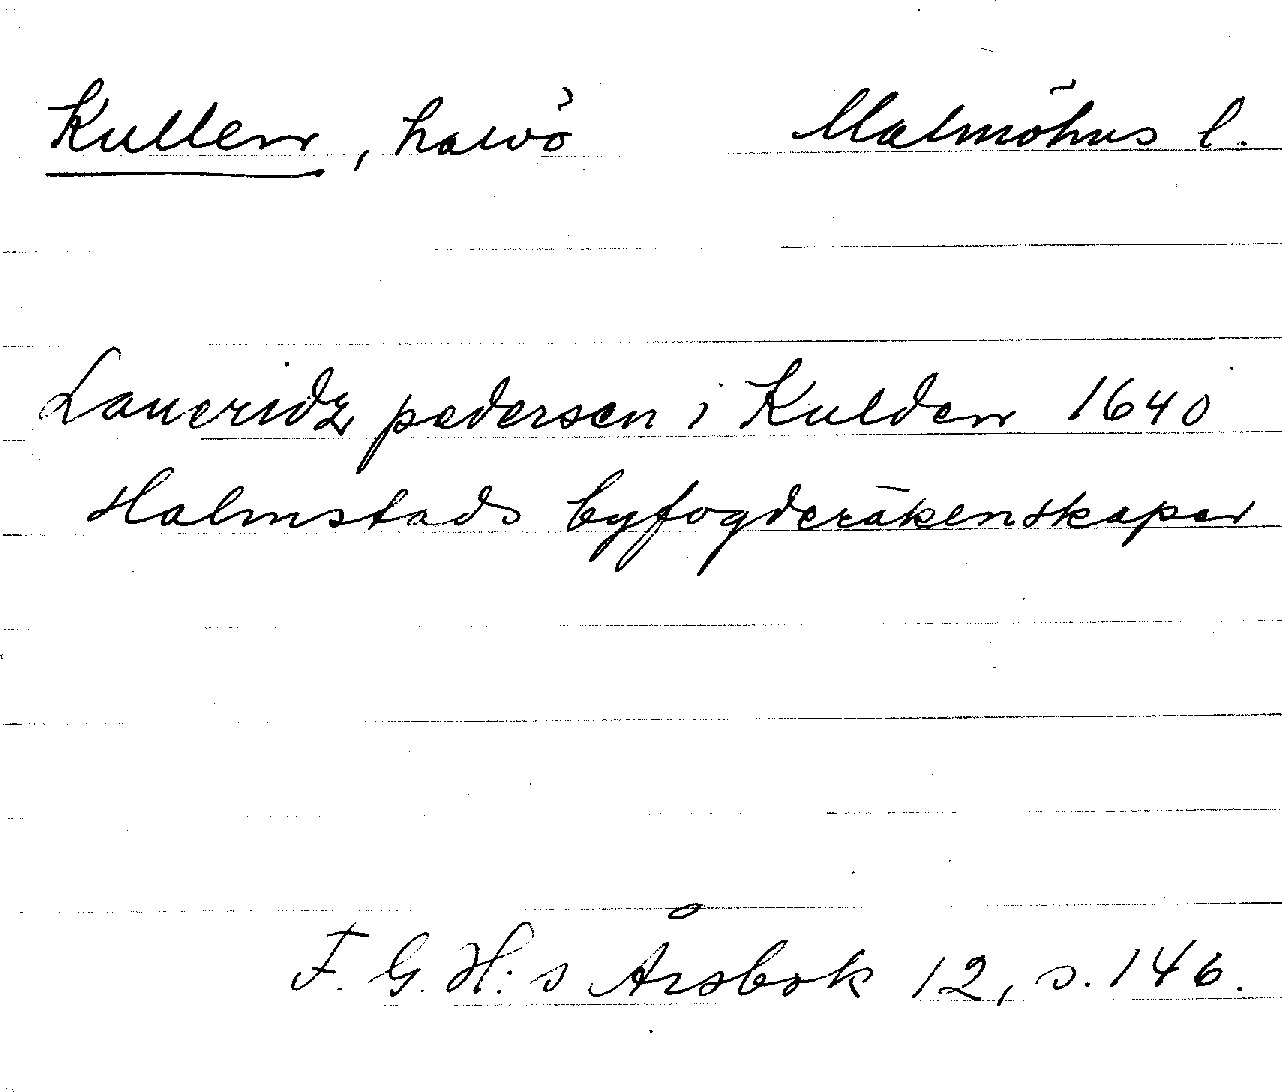 Kullen, halvö Malmöhus l.
Laueridz pedersen i Kulden 1640
Halmstads byfogderäkenskaper
F. G. H:s Årsbok 12, s. 146.